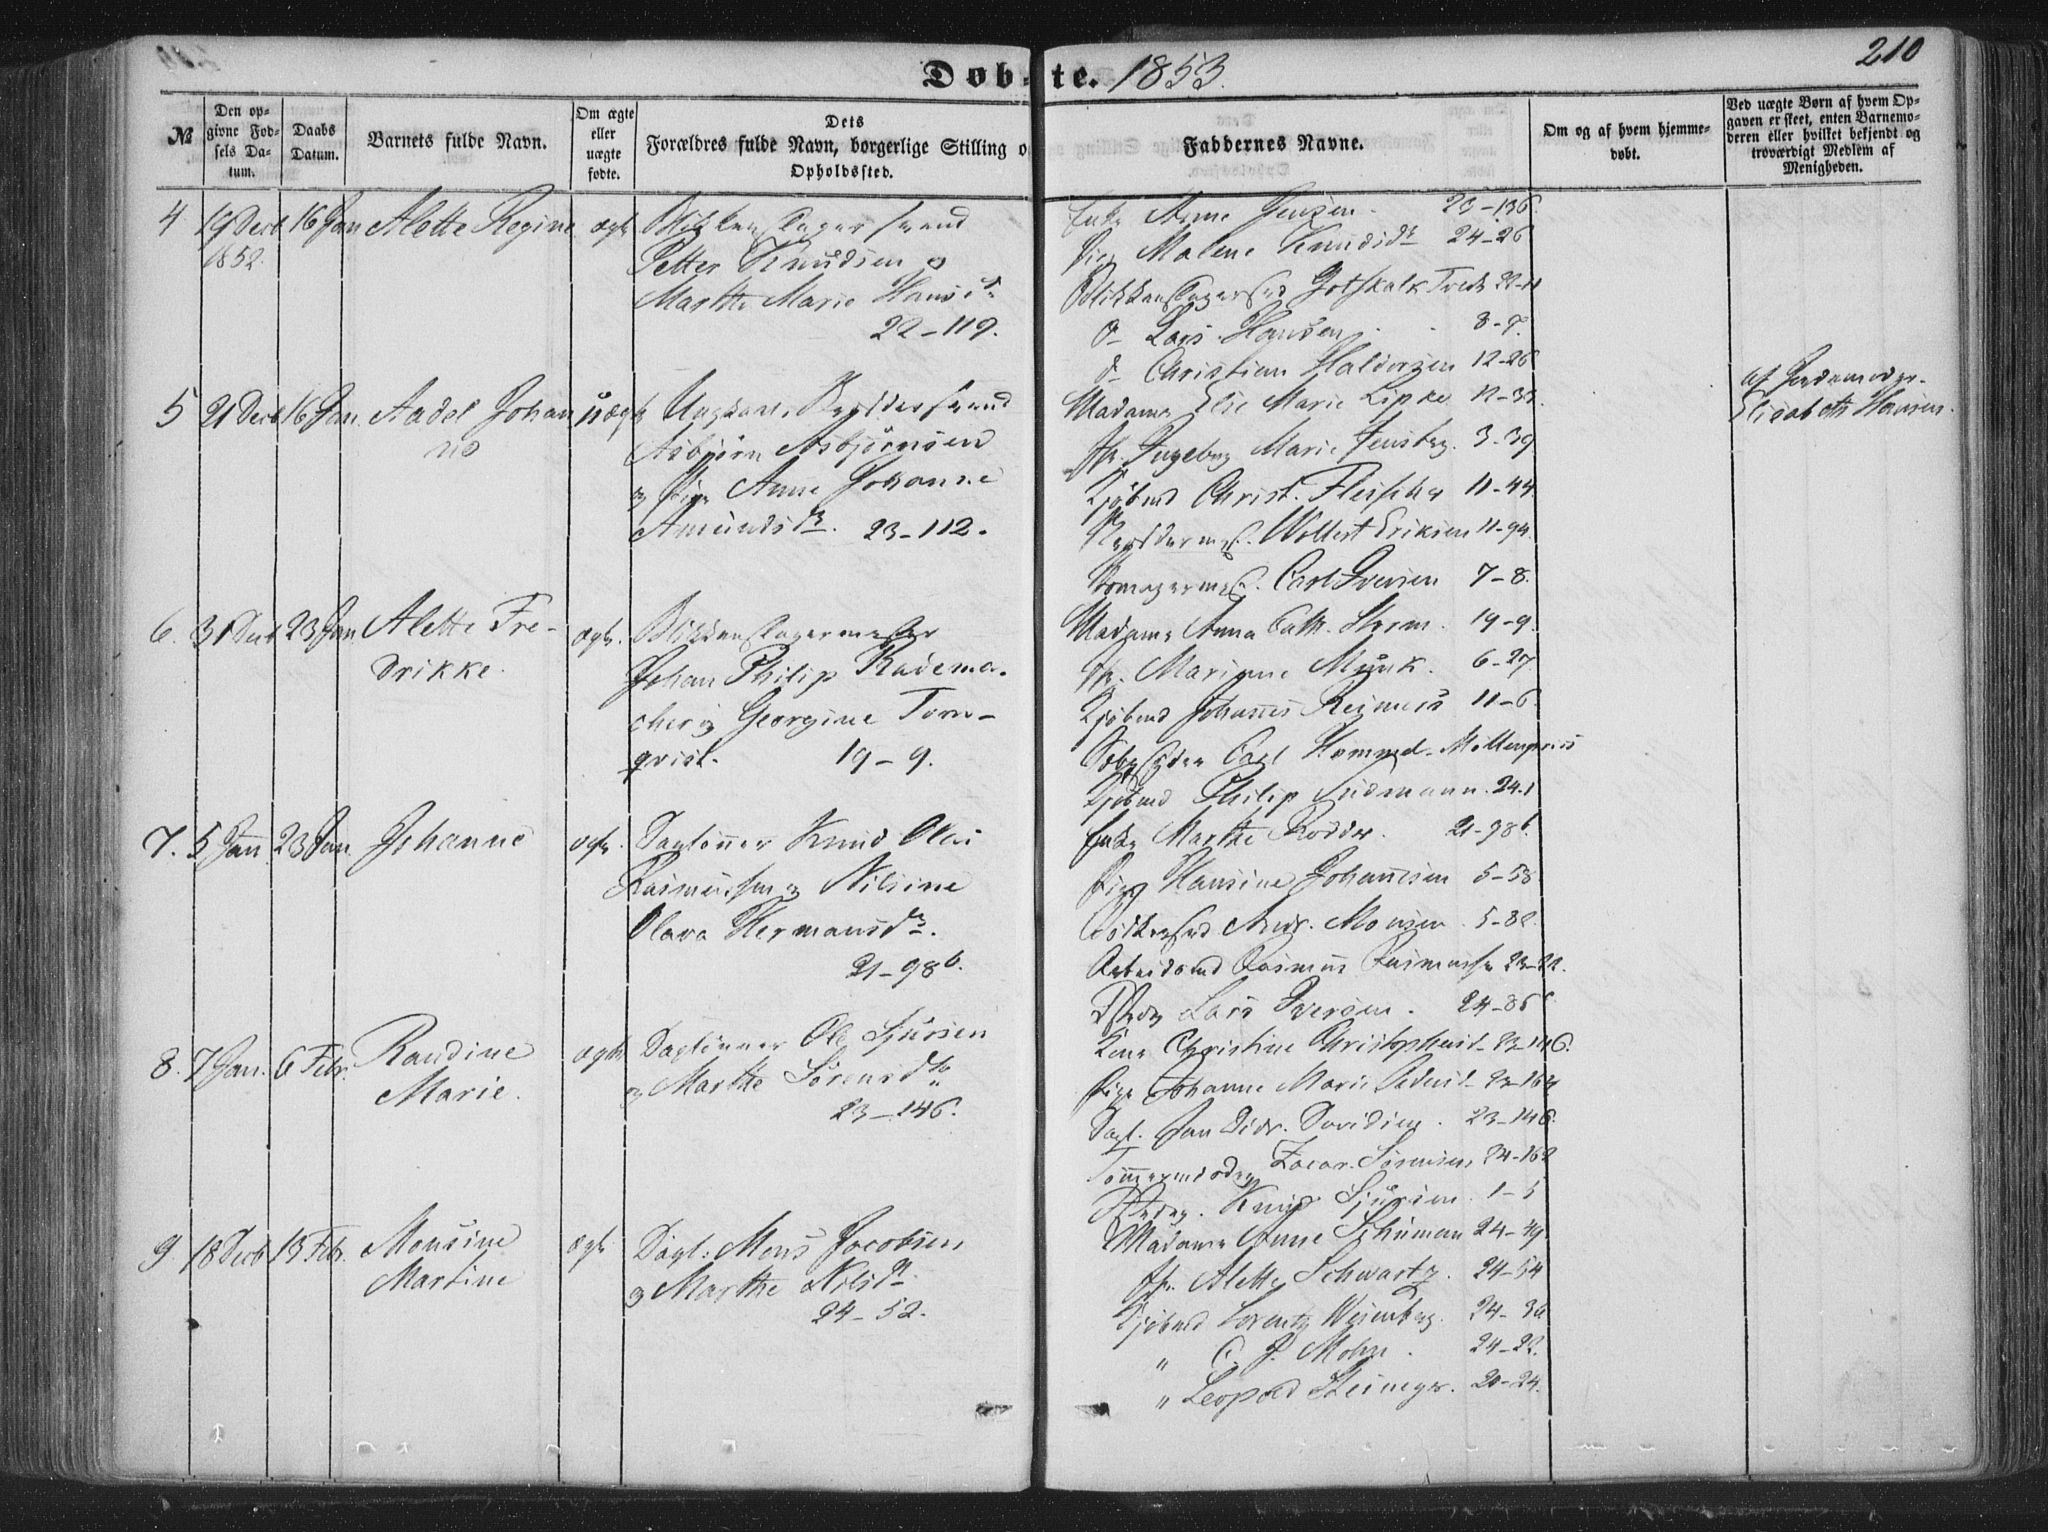 Døbte. 1853.
210
№
Den opgivne Fødsels Datum.
Daabs Datum.
Barnets fulde Navn.
Om ægte eller uægte fødte.
Dets Forældres fulde Navn, borgerlige Stilling o
Opholdssted.
Faddernes Navne.
Om og af hvem hjemmedøbt.
Ved uægte Børn af hvem Opgaven er skeet, enten Barnemoderen eller hvilket bekjendt og troværdigt Medlem af Menigheden.
4 19 Decb 1852. 16 Jan Alette Regine ægte
Blikkenslagersvend
Petter Knudsen og
Marthe Marie Hansd.
22-119.
Enke Anne Jensen. 23-136.
Pige Malene Knudsdr 24-26
Blikkenslagersvd Gotskalk Fredr 22-11
d– Lars Hansen 8-7.
d– Christian Haldorsen 12-26
5 21 Decb 16 Jan. Aadel Johanne uægte
Ungkarl, Bøddersvend
Asbjørn Asbjørnsen
og Pige Anne Johanne
Amundsdr. 23-112.
Madame Elise Marie Lipke 12-32.
Jfr. Ingeborg Marie Jensberg. 3-39
Kjøbmd Christ. Fleischer 11-44
Bøddermest. Wollert Eriksen 11-94.
Carl Iversen 7-8.
af Jordemoder
Elisabeth Hansen.
6. 31 Decb 23 Jan Alette Fredrikke. ægte.
Blikkenslagermester
Johan Philip Rademacher og Georgine Tornqvist. 19-9.
Madame Anna Cath. Storm. 19-9.
Jfr. Marianne Munk. 6-27.
Kjøbmd Johannes Reimers 11-6
Carl Hommel. Møllenpriis
Kjøbmd Philip 24-1
7. 5 Jan 23 Jan Johanne ægte.
Dagleiner Knud Olai
Rasmussen og Nilsine
Olava Hermansdr.
21-98b.
Enke Marthe 21-98b.
Pige Hansine Johannesen 5-58
Andr. Monsen 5-82.
Arbeidsmd Rasmus Rasmussen 23-22.
Lars Iversen. 24-86
8. 7 Jan. 6 Febr. Randine Marie. ægte
Dagleiner Ole Sjursen
og Marthe Sørensdr
23-146.
Kone Christine Christophersd. 23-146.
Pige Johanne Marie Pedersd. 23-164
Dagl. Jan Didr. Davidsen. 23-146.
Tømmermd Zacar. Sørensen 24-162
Knud Sjursen. 1-5
9 18 Decb 13 Febr. Monsine Martine ægte
Dagl: Mons Jacobsen
og Marthe Nilsdr.
24-52.
Madame Anne Schuman 24-49.
Jfr. Alette Schwartz. 24-54
Kjøbmd Lorentz Wesenberg. 24-30
" C. J. Mohn. 24-22.
" Leopold Steineger. 20-24.